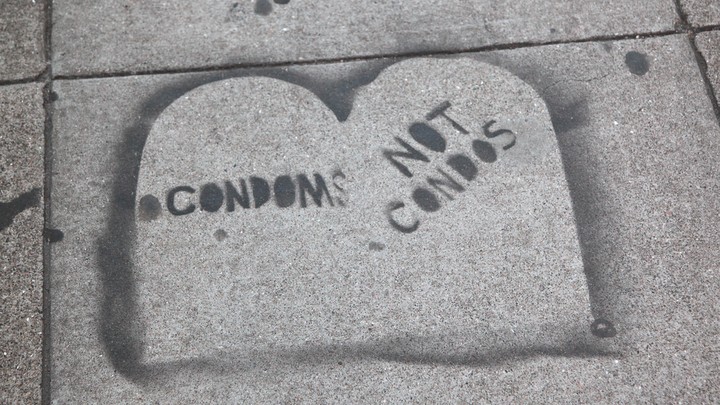 CONDOMS
NOT
CONDOS